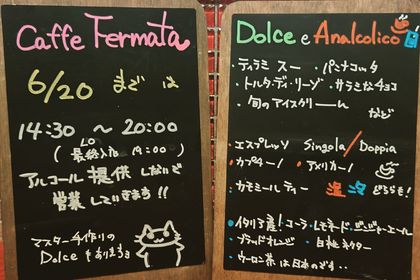 Caffe Fermata
6/20 までは
14:30 〜 20:00
( LO 最終入店 19:00 )
アルコール提供しないで
営業していきます!!
マスター手作りの
Dolceもあります
Dolce e Analcolico
・ティラミスー ・パンナコッタ
・トルタ・ディ・リーゾ ・サラミなチョコ
・旬のアイスクリーーん など
・エスプレッソ Singola/Doppia
・カプチーノ ・アメリカーノ
・カモミールティー 温 冷 どちらも!
・イタリア産!コーラ・レモネード・ジンジャーエール
・ブラッドオレンジ ・白桃ネクター
・ウーロン茶は日本のです..